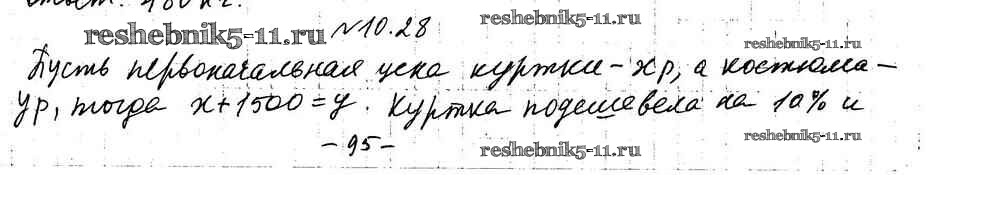 reshebnik5-11.ru
reshebnik5-11.ru №10.28
reshebnik5-11.ru
Пусть первоначальная цена куртки – хр, а костюма –
ур, тогда х+1500=у. Куртка подешевела на 10% и
reshebnik5-11.ru
– 95 –
reshebnik5-11.ru